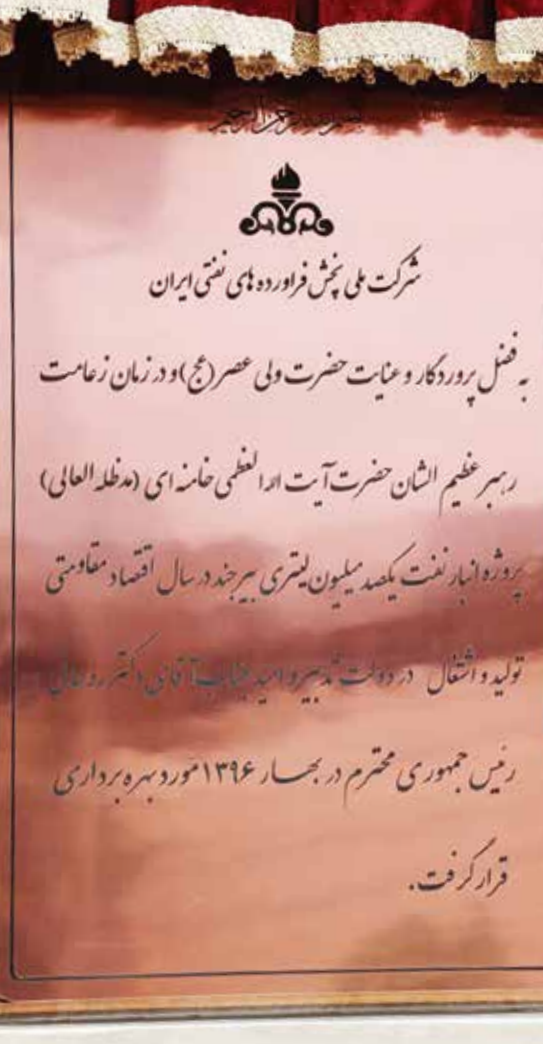 بسم الله الرحمن الرحیم
شرکت ملی پخش فراورده های نفتی ایران
به فضل پروردگار و عنایت حضرت ولی عصر (عج) و در زمان زعامت
رهبر عظیم الشان حضرت آیت الله العظمی خامنه ای (مدظله العالی)
پروژه انبار نفت یکصد میلیون لیتری بیرجند در سال اقتصاد مقاومتی
تولید و اشتغال در دولت تدبیر و امید جناب آقای دکتر روحانی
رئیس جمهوری محترم در بهار ۱۳۹۶ مورد بهره برداری
قرار گرفت.